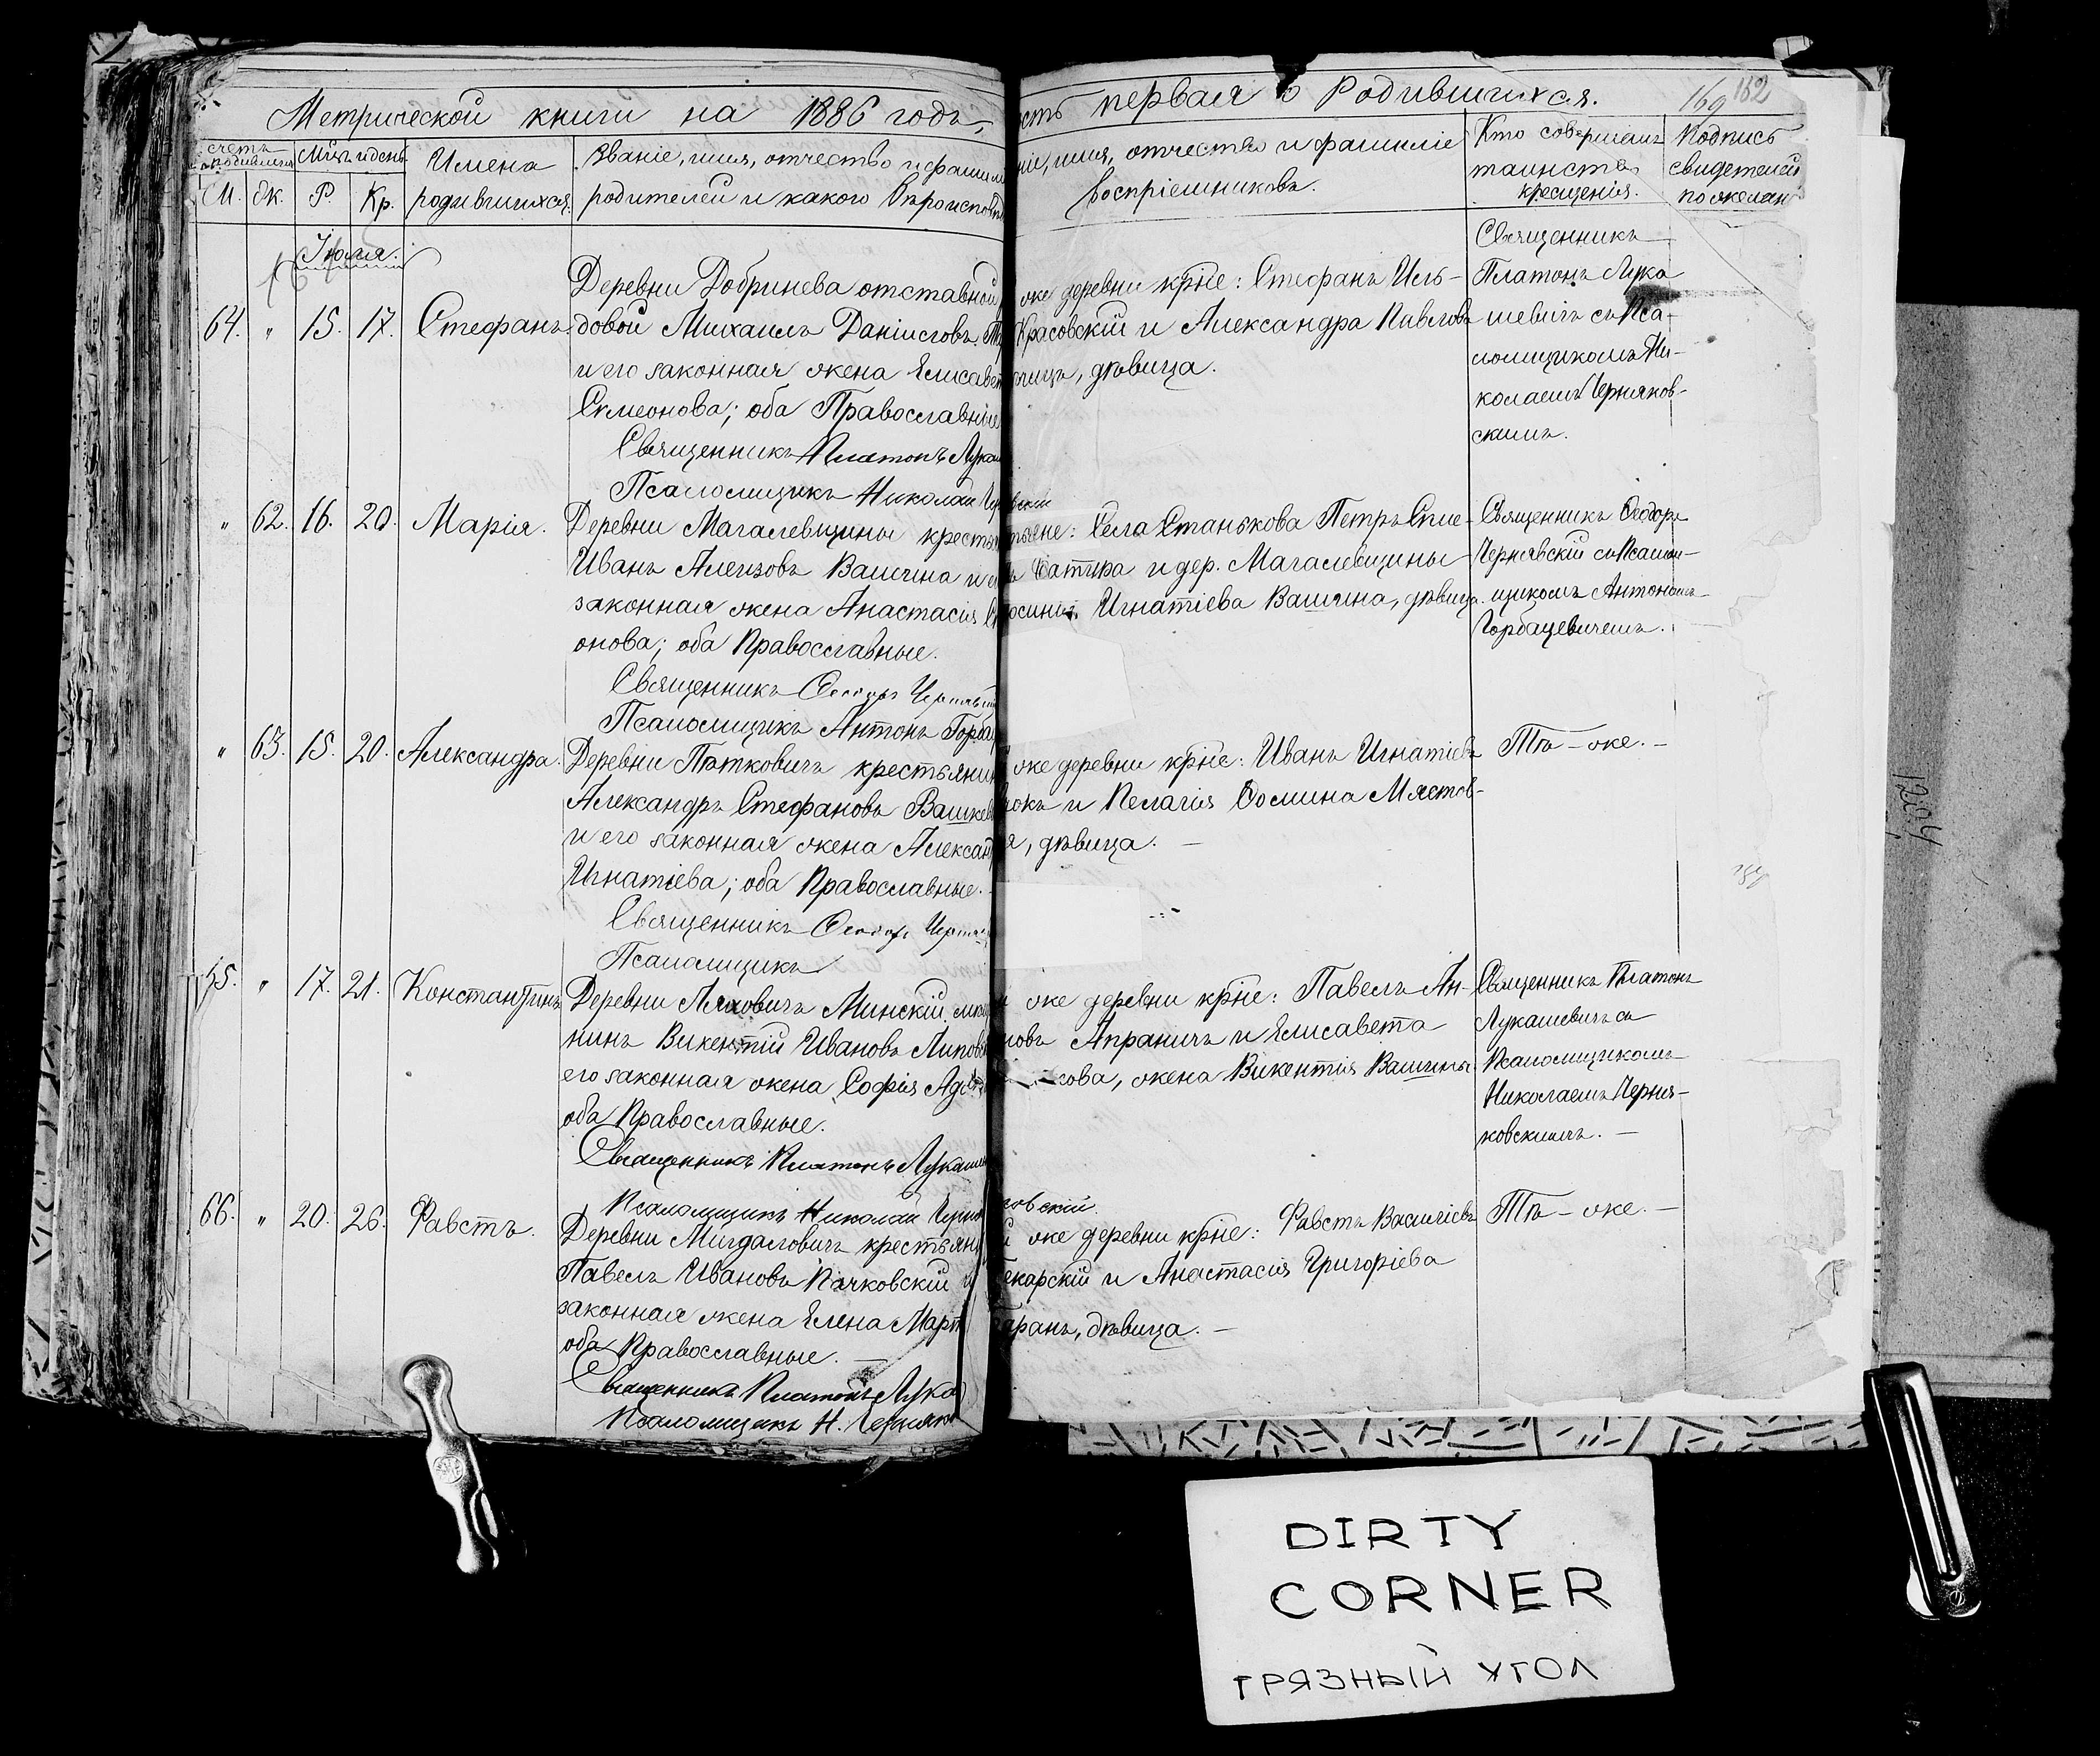 Метрической книги на 1886 годъ,
сть первая о Родившихся.
169 182
счетъ родившихся
Мѣц. и день
Имена
родившихся.
Званіе, имя, отчество и фамил
родителей и какого вѣроисповѣ
М. Ж. Р. Кр.
ніе, имя, отчество и фамиліе
воспріемниковъ.
Кто совершалъ
таинство
крещенія.
Подпись
свидетелей
по желан
Іюля.
64. " 15. 17. Стефанъ.
Деревни Добринева отставной
довой Михаилъ Даніиловъ
и его законная жена Елисавет
Симеонова; оба Православные
Священникъ Платонъ Лука
Псаломщикъ Николай Чер
же деревни крѣне: Стефанъ Иль-
Красовскій и Александра Павлова
дѣвица.
Священникъ
Платонъ Лука
шевичъ съ Пса-
ломщикомъ Ни-
колаемъ Черняков-
скимъ.
" 62. 16. 20. Марія.
Деревни Магалевщины крестья
Иванъ Алеизовъ Вашина и
законная жена Анастасія
онова; оба Православные.
Священникъ Ѳеодоръ Чернявскі
Псаломщикъ Антонъ Горба
тьяне: Села Станькова Петръ
и дер. Магалевщины
Игнатіева Вашина, дѣвица.
Священникъ Ѳеодоръ
Чернявскій съ Псалом-
щикомъ Антономъ
Горбацевичемъ.
" 63. 15. 20. Александра.
Деревни Пятковичъ крестьянин
Александръ Стефановъ Вашкев
и его законная жена Александ
Игнатіева; оба Православные.
Священникъ Ѳеодоръ Черняв
Псаломщикъ
же деревни крѣне: Иванъ Игнатіевъ
окъ и Пелагія Ѳомина Мястов-
я, дѣвица. —
Тѣ-же. —
65. " 17. 21. Константинъ
Деревни Ляховичъ Минскій мѣща
нинъ Викентій Ивановъ Липовск
его законная жена Софія Ад
оба Православные.
Священникъ Платонъ Лукаше
Псаломщикъ Николай Черня
ковскій.
же деревни крѣне: Павелъ Ан-
новъ Апраничъ и Елисавета
кова, жена Викентія Вашины.
Священникъ Платонъ
Лукашевичъ съ
Псаломщикомъ
Николаемъ Черня-
ковскимъ. —
66. " 20. 26. Фавстъ.
Деревни Мигдаловичъ крестьяни
Павелъ Ивановъ Пачковскій и
законная жена Елена Март
оба Православные. —
Священникъ Платонъ Лука
Псаломщикъ Н. Черняк
же деревни крѣне: Фавстъ Василіевъ
екарскій и Анастасія Григоріева
аранъ, дѣвица. —
Тѣ-же. —
1204
DIRTY
CORNER
ГРЯЗНЫЙ УГОЛ